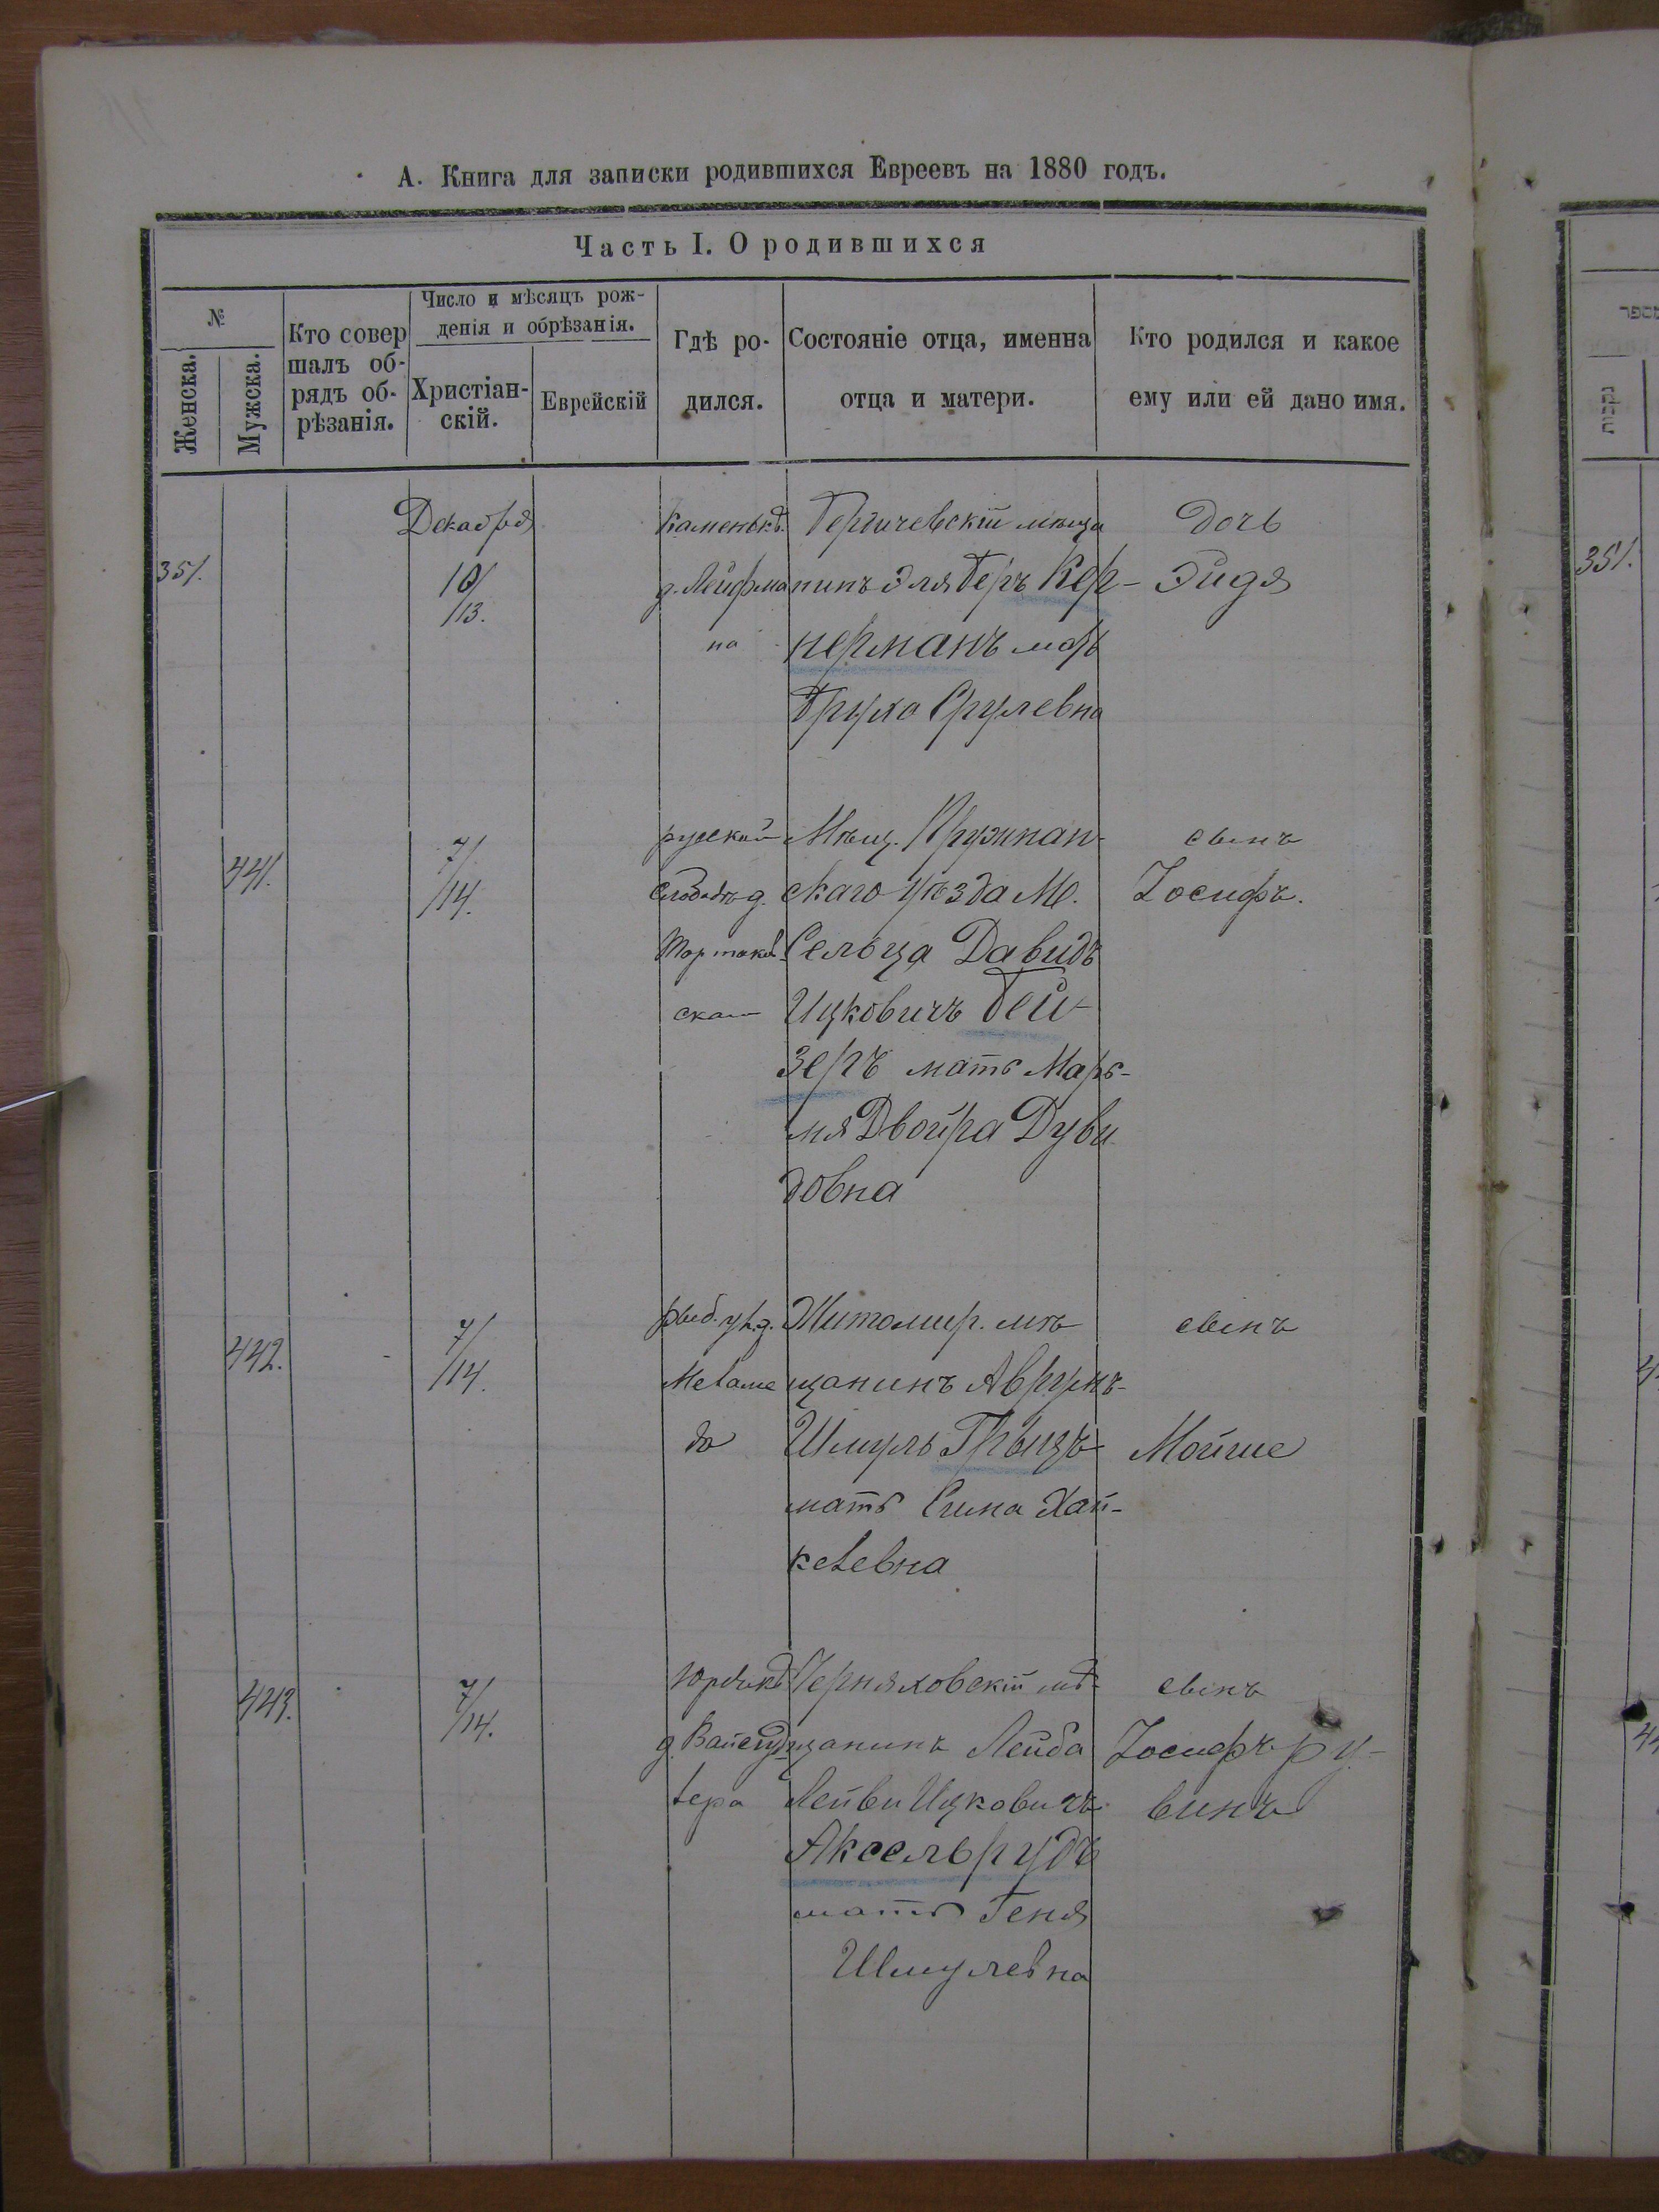 А. Книга для записки родившихся Евреевъ на 1880 годъ.
Часть I. О родившихся
№
Женска.
Мужска.
Кто совер
шалъ об-
рядъ об-
рѣзанія.
Число и мѣсяцъ рож-
денія и обрѣзанія.
Христіан-
скій.
Еврейскій
Гдѣ ро-
дился.
Состояніе отца, именна
отца и матери.
Кто родился и какое
ему или ей дано имя.
351.
Декабря
10/
/13.
д. Лейфма
на
Бердичевскій мѣща
нинъ Эля Беръ Кер-
нерманъ мать
Бруха Срулевна
дочь
Эйдя
441.
7/
/14.
русской
слободкѣ д.
ская
Мѣщ. Пружан-
скаго уѣзда М.
Сельца Давидъ
Ицковичъ Бей-
зеръ мать Марь-
мя Двойра Дуви
довна
сынъ
Іосифъ.
442.
7/
/14.
рыб. ул. д.
Меламе
да
Житомир. мѣ
щанинъ Аврумъ-
Шмуль
мать Сима Хай-
келевна
сынъ
Мойше
443.
7/
/14.
тера
Черняховскій мѣ-
щанинъ Лейба
Лейви Ицковичъ
Аксельрудъ
мать Геня
Шмулевна
сынъ
Іосифъ Ру-
винъ
מספר
נקבות
351.